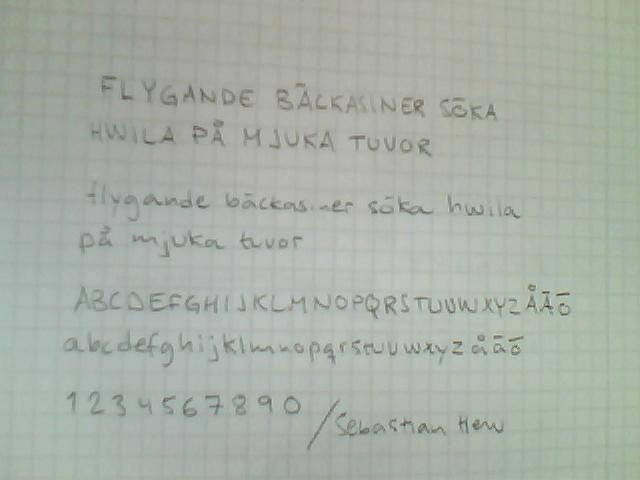 FLYGANDE BÄCKASINER SÖKA
HWILA PÅ MJUKA TUVOR
flygande bäckasiner söka hwila
på mjuka tuvor
ABCDEFGHIJKLMNOPQRSTUVWXYZÅÄÖ
abcdefghijklmnopqrstuvwxyzåäö
1234567890 /Sebastian